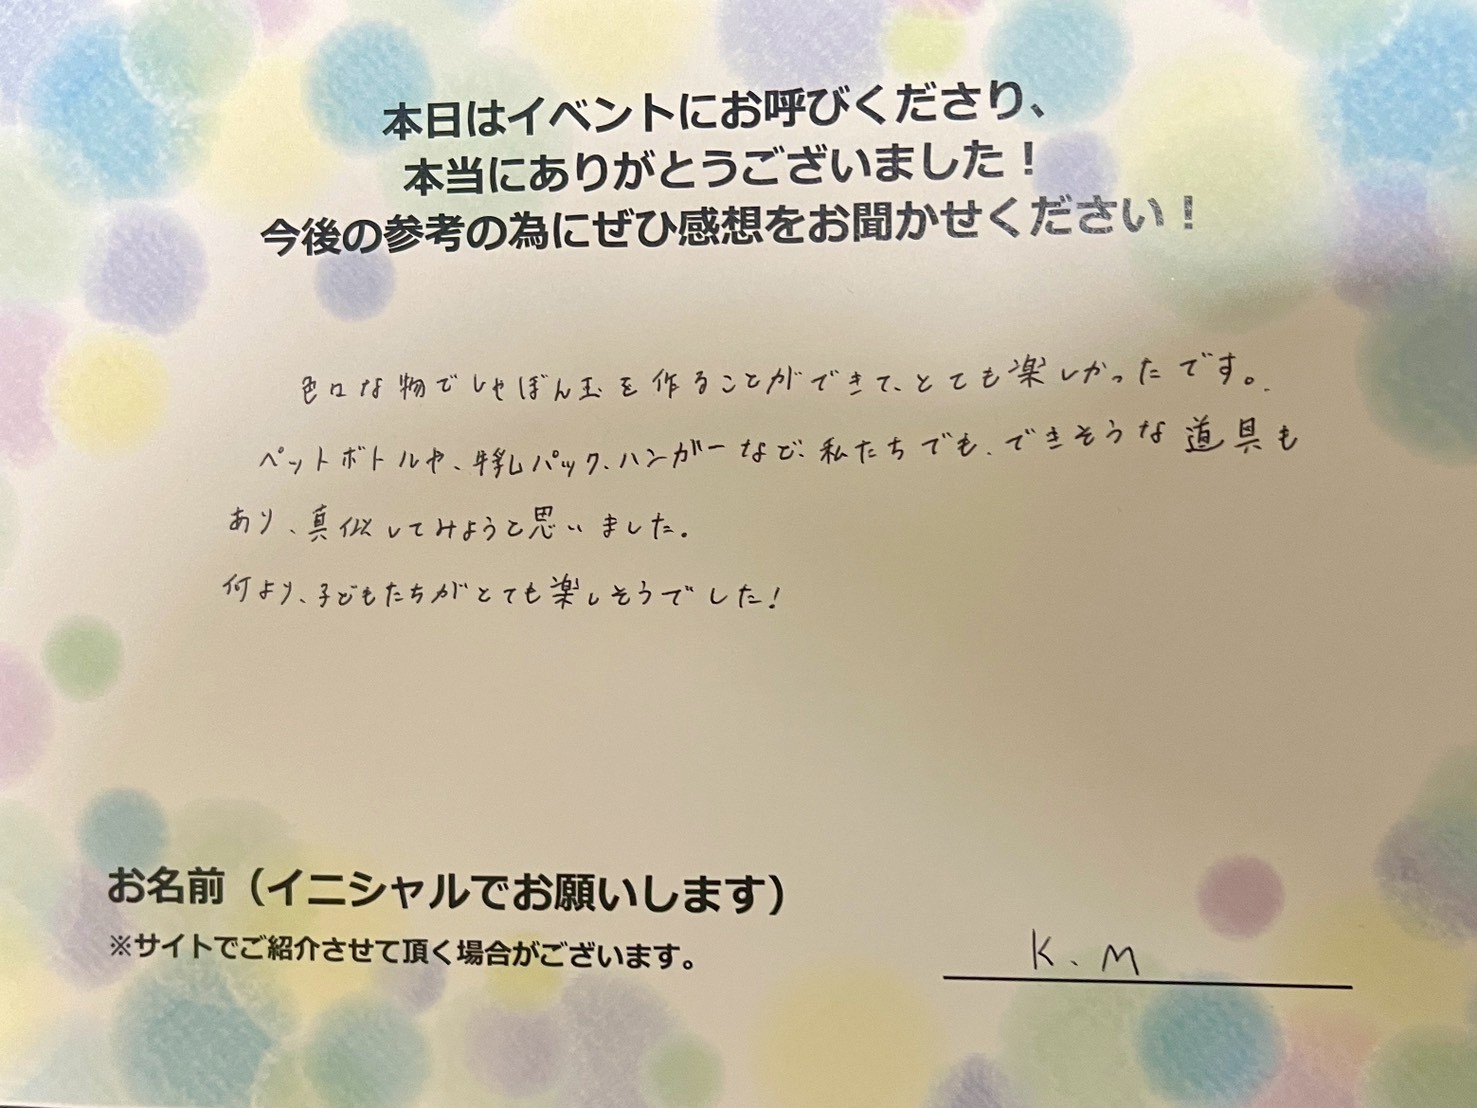 本日はイベントにお呼びくださり、
本当にありがとうございました！
今後の参考の為にぜひ感想をお聞かせください！
色々な物でしゃぼん玉を作ることができて、とても楽しかったです。
ペットボトルや、牛乳パック、ハンガーなど、私たちでも、できそうな道具も
あり、真似してみようと思いました。
何より、子どもたちがとても楽しそうでした！
お名前（イニシャルでお願いします）
※サイトでご紹介させて頂く場合がございます。
K.M